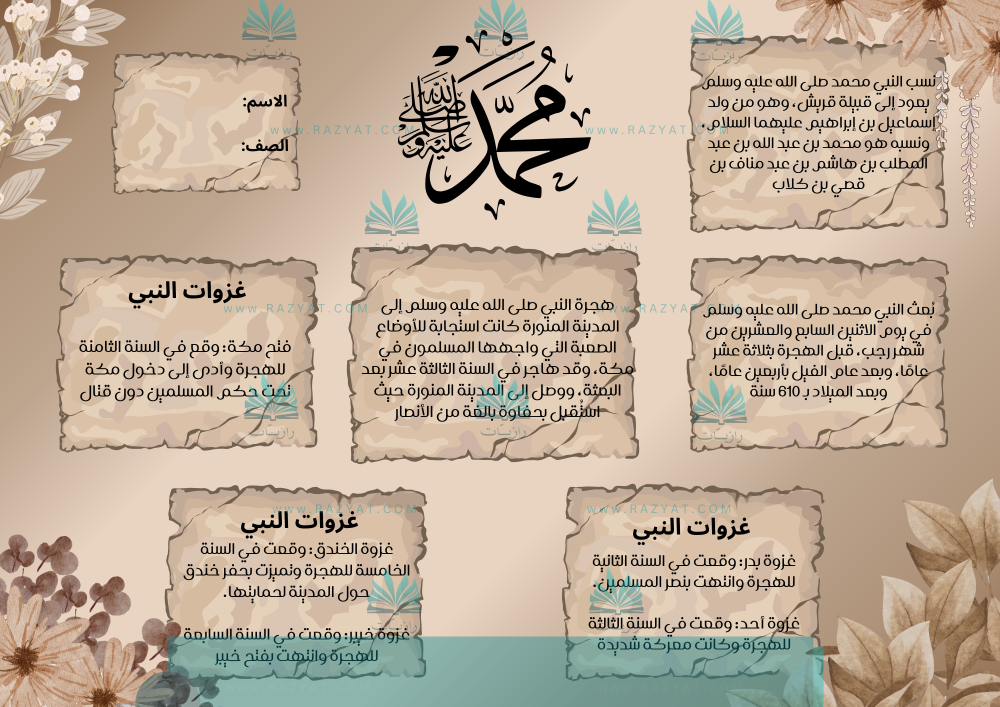 محمد
صلى الله عليه وسلم
الاسم:
الصف:
نسب النبي محمد صلى الله عليه وسلم
يعود إلى قبيلة قريش، وهو من ولد
إسماعيل بن إبراهيم عليهما السلام،
ونسبه هو محمد بن عبد الله بن عبد
المطلب بن هاشم بن عبد مناف بن
قصي بن كلاب
بُعث النبي محمد صلى الله عليه وسلم
في يوم الاثنين السابع والعشرين من
شهر رجب، قبل الهجرة بثلاثة عشر
عامًا، وبعد عام الفيل بأربعين عامًا،
وبعد الميلاد بـ 610 سنة
هجرة النبي صلى الله عليه وسلم إلى
المدينة المنورة كانت استجابة للأوضاع
الصعبة التي واجهها المسلمون في
مكة، وقد هاجر في السنة الثالثة عشر بعد
البعثة، ووصل إلى المدينة المنورة حيث
استقبل بحفاوة بالغة من الأنصار
غزوات النبي
فتح مكة: وقع في السنة الثامنة
للهجرة وأدى إلى دخول مكة
تحت حكم المسلمين دون قتال
غزوات النبي
غزوة بدر: وقعت في السنة الثانية
للهجرة وانتهت بنصر المسلمين.
غزوة أحد: وقعت في السنة الثالثة
للهجرة وكانت معركة شديدة
غزوات النبي
غزوة الخندق: وقعت في السنة
الخامسة للهجرة وتميزت بحفر خندق
حول المدينة لحمايتها.
غزوة خيبر: وقعت في السنة السابعة
للهجرة وانتهت بفتح خيبر
رازيات
رازيات
رازيات
رازيات
رازيات
رازيات
رازيات
رازيات
رازيات
رازيات
WWW.RAZYAT.COM
WWW.RAZYAT.COM
WWW.RAZYAT.COM
WWW.RAZYAT.COM
WWW.RAZYAT.COM
WWW.RAZYAT.COM